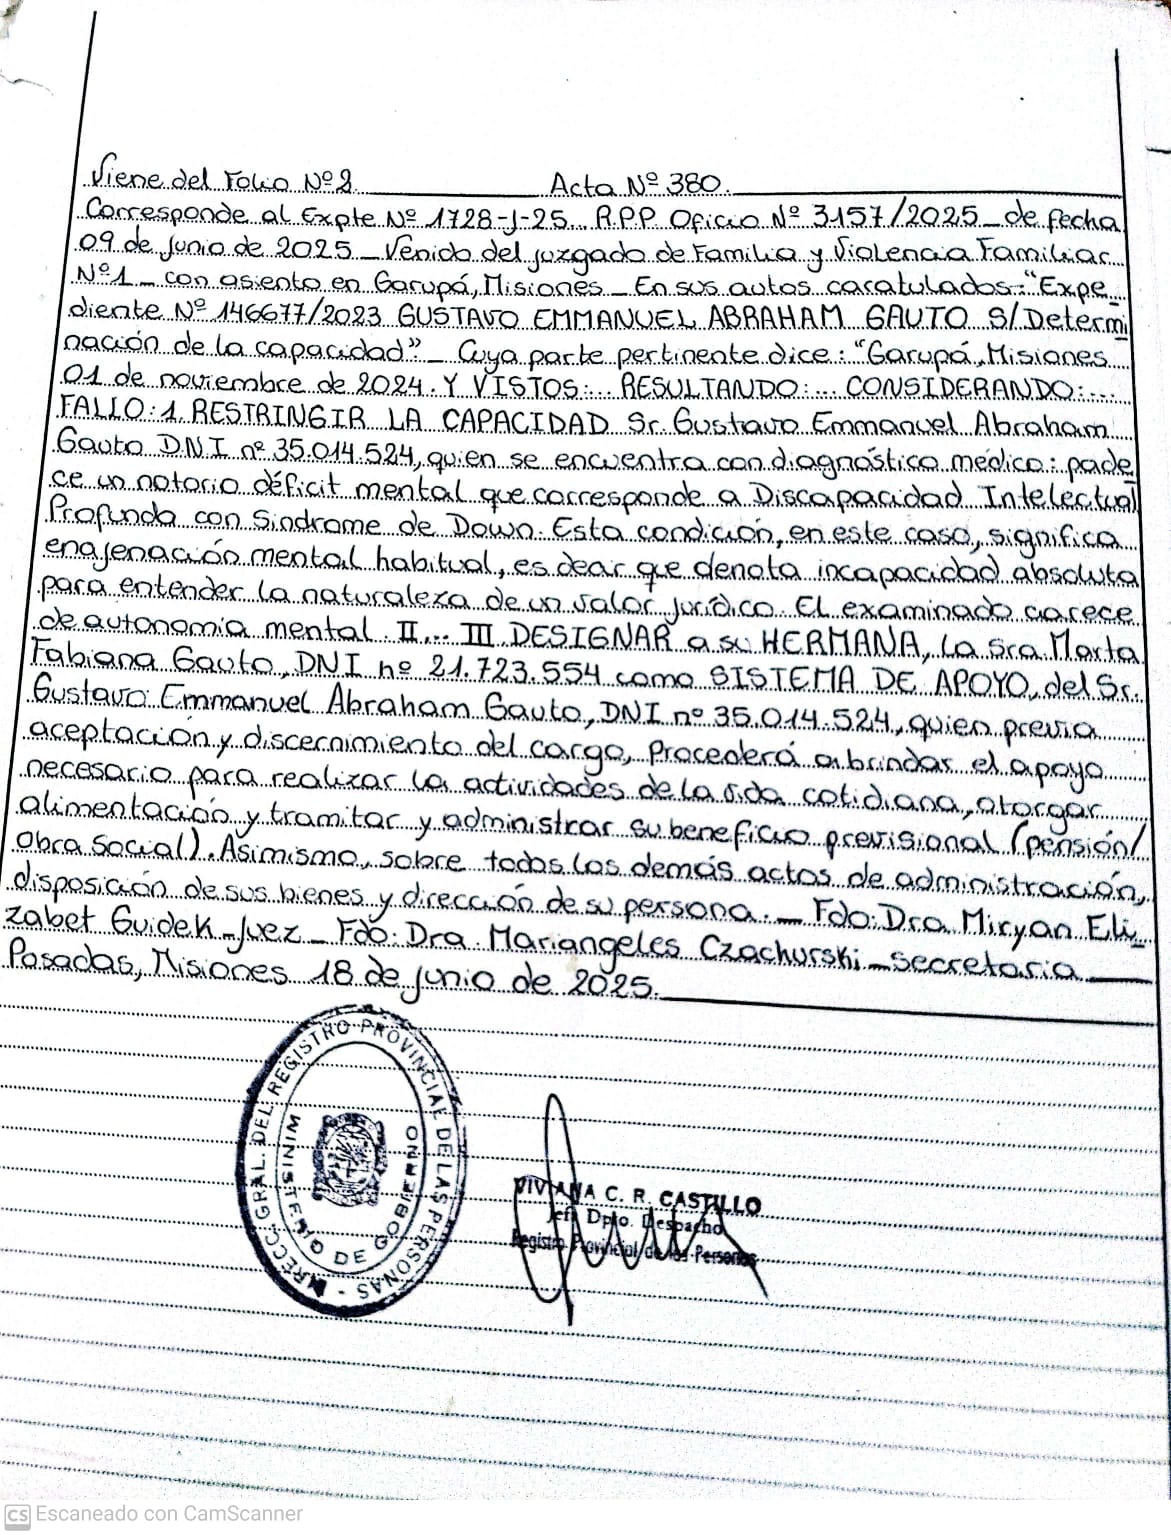 Viene del Folio Nº 2 Acta Nº 380.
Corresponde al Expte Nº 1728-J-25... R.P.P. Oficio Nº 3157/2025 _ de fecha
09 de junio de 2025 _ Venido del juzgado de Familia y Violencia Familiar
Nº1 _ con asiento en Garupá, Misiones _ En sus autos caratulados: "Expe_
diente Nº 146677/2023 GUSTAVO EMMANUEL ABRAHAM GAUTO S/Determi
nación de la capacidad" _ Cuya parte pertinente dice: "Garupá, Misiones
01 de noviembre de 2024. Y VISTOS:... RESULTANDO:... CONSIDERANDO:...
FALLO: 1. RESTRINGIR LA CAPACIDAD Sr. Gustavo Emmanuel Abraham
Gauto D.N.I nº 35.014.524, quien se encuentra con diagnóstico médico: pade
ce un notorio déficit mental que corresponde a Discapacidad Intelectual
Profunda con Síndrome de Down. Esta condición, en este caso, significa
enajenación mental habitual, es decir que denota incapacidad absoluta
para entender la naturaleza de un valor jurídico. El examinado carece
de autonomía mental. II... III DESIGNAR a su HERMANA, la Sra. Marta
Fabiana Gauto, DNI nº 21.723.554 como SISTEMA DE APOYO, del Sr.
Gustavo Emmanuel Abraham Gauto, DNI nº 35.014.524, quien previa
aceptación y discernimiento del cargo, procederá a brindar el apoyo
necesario para realizar la actividades de la vida cotidiana, otorgar
alimentación y tramitar y administrar su beneficio previsional (pensión/
Obra Social). Asimismo, sobre todos los demás actos de administración,
disposición de sus bienes y dirección de su persona. _ Fdo: Dra. Miryan Eli_
zabet Guidek - Juez _ Fdo: Dra Mariangeles Czachurski _ secretaria
Posadas, Misiones 18 de junio de 2025.
DIRECC. GRAL. DEL REGISTRO PROVINCIAL DE LAS PERSONAS -
MINISTERIO DE GOBIERNO
VIVIANA C. R. CASTILLO
Jefe Dpto. Despacho
Registro Provincial de las Personas
CS Escaneado con CamScanner